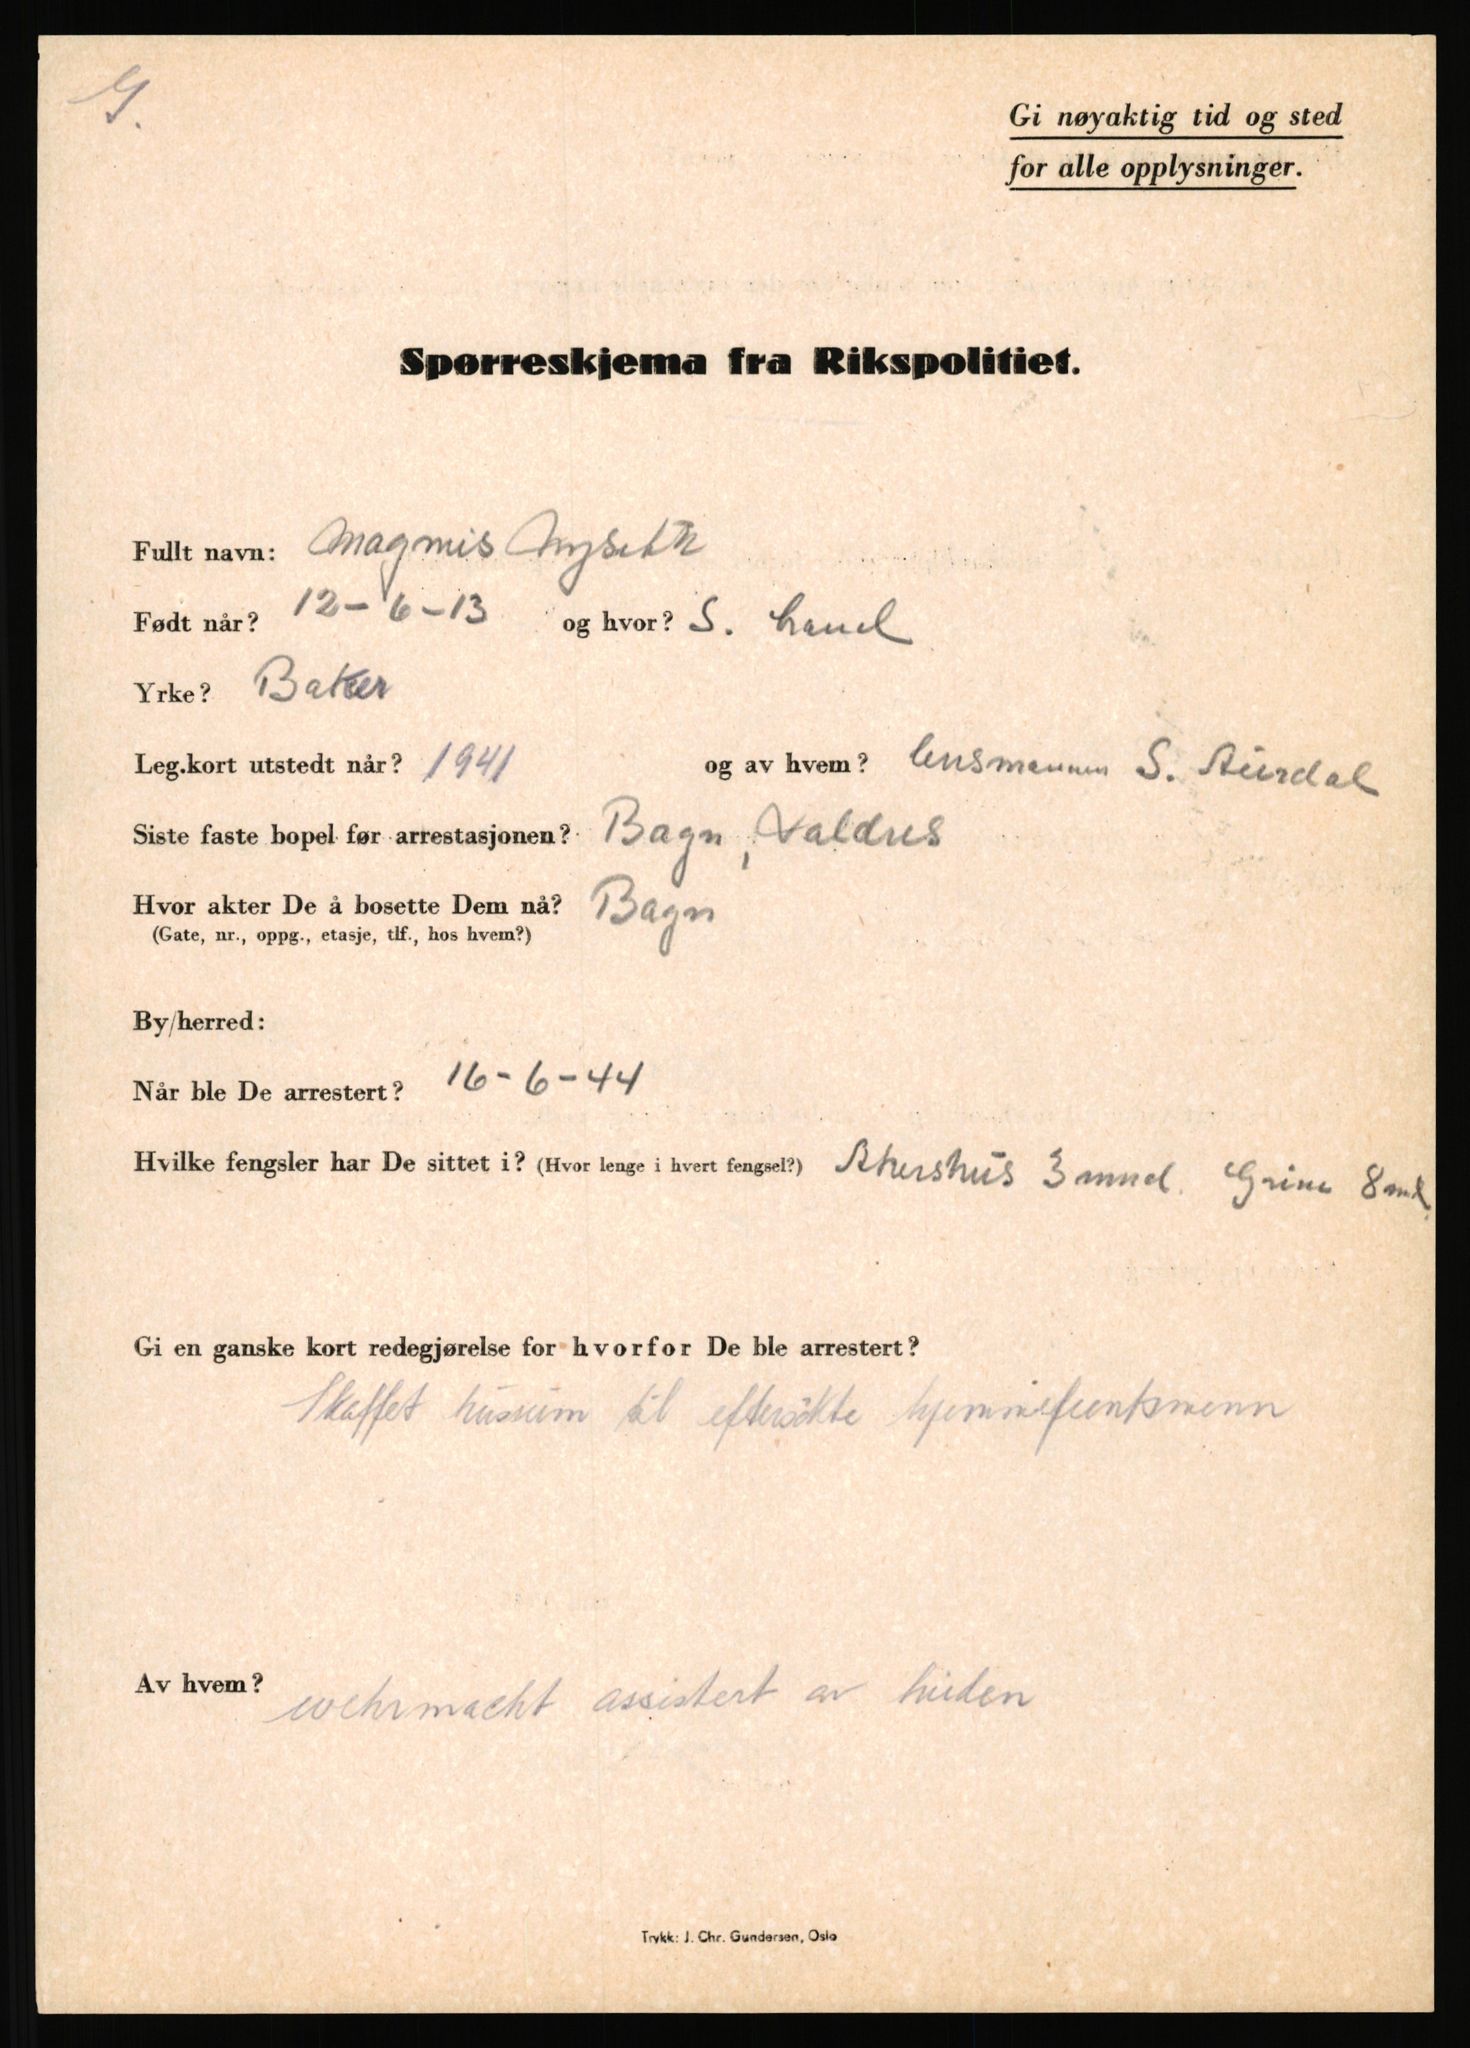 G.
Gi nøyaktig tid og sted
for alle opplysninger.
Spørreskjema fra Rikspolitiet.
Fullt navn: Magnus Nyseth
Født når? 12-6-13 og hvor? S. Land
Yrke? Baker
Leg.kort utstedt når? 1941 og av hvem? lensmannen S. Aurdal
Siste faste bopel før arrestasjonen? Bagn, Valdres
Hvor akter De å bosette Dem nå? Bagn
(Gate, nr., oppg., etasje, tlf., hos hvem?)
By/herred:
Når ble De arrestert? 16-6-44
Hvilke fengsler har De sittet i? (Hvor lenge i hvert fengsel?) Akershus 3 mnd. Grini 8 mnd.
Gi en ganske kort redegjørelse for hvorfor De ble arrestert?
Skaffet husrum til eftersökte hjemmefrontsmenn
Av hvem? wehrmacht assistert av hirden
Trykk: J. Chr. Gundersen, Oslo